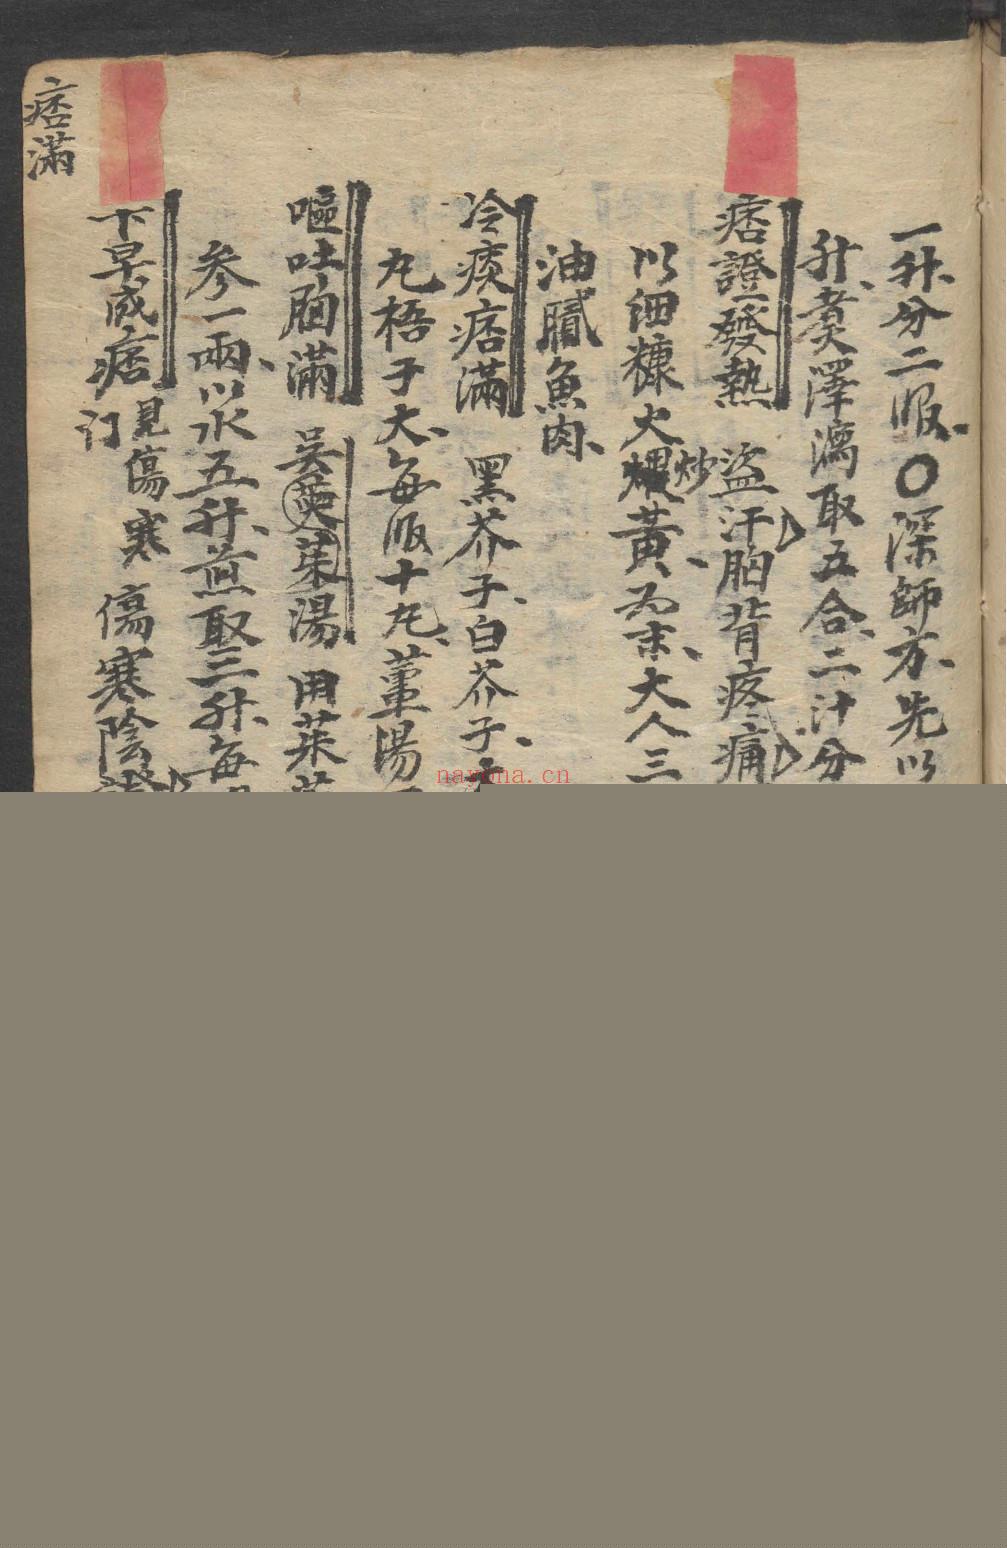 一升、分二服、〇深師方、先以
升、煑澤漆取五合、二汁分
痞證發熱 盜汗胸背疼痛
以细糠火炒黃、為末、大人三
油膩魚肉、
冷痰痞滿 黑芥子、白芥子、
丸梧子大、每服十丸、薑湯
嘔吐胸滿 吴茰茱湯 用茱
參一兩、以水五升、煎取三升、每
下早成痞 見傷寒门 傷寒陰
痞滿
nayona.cn